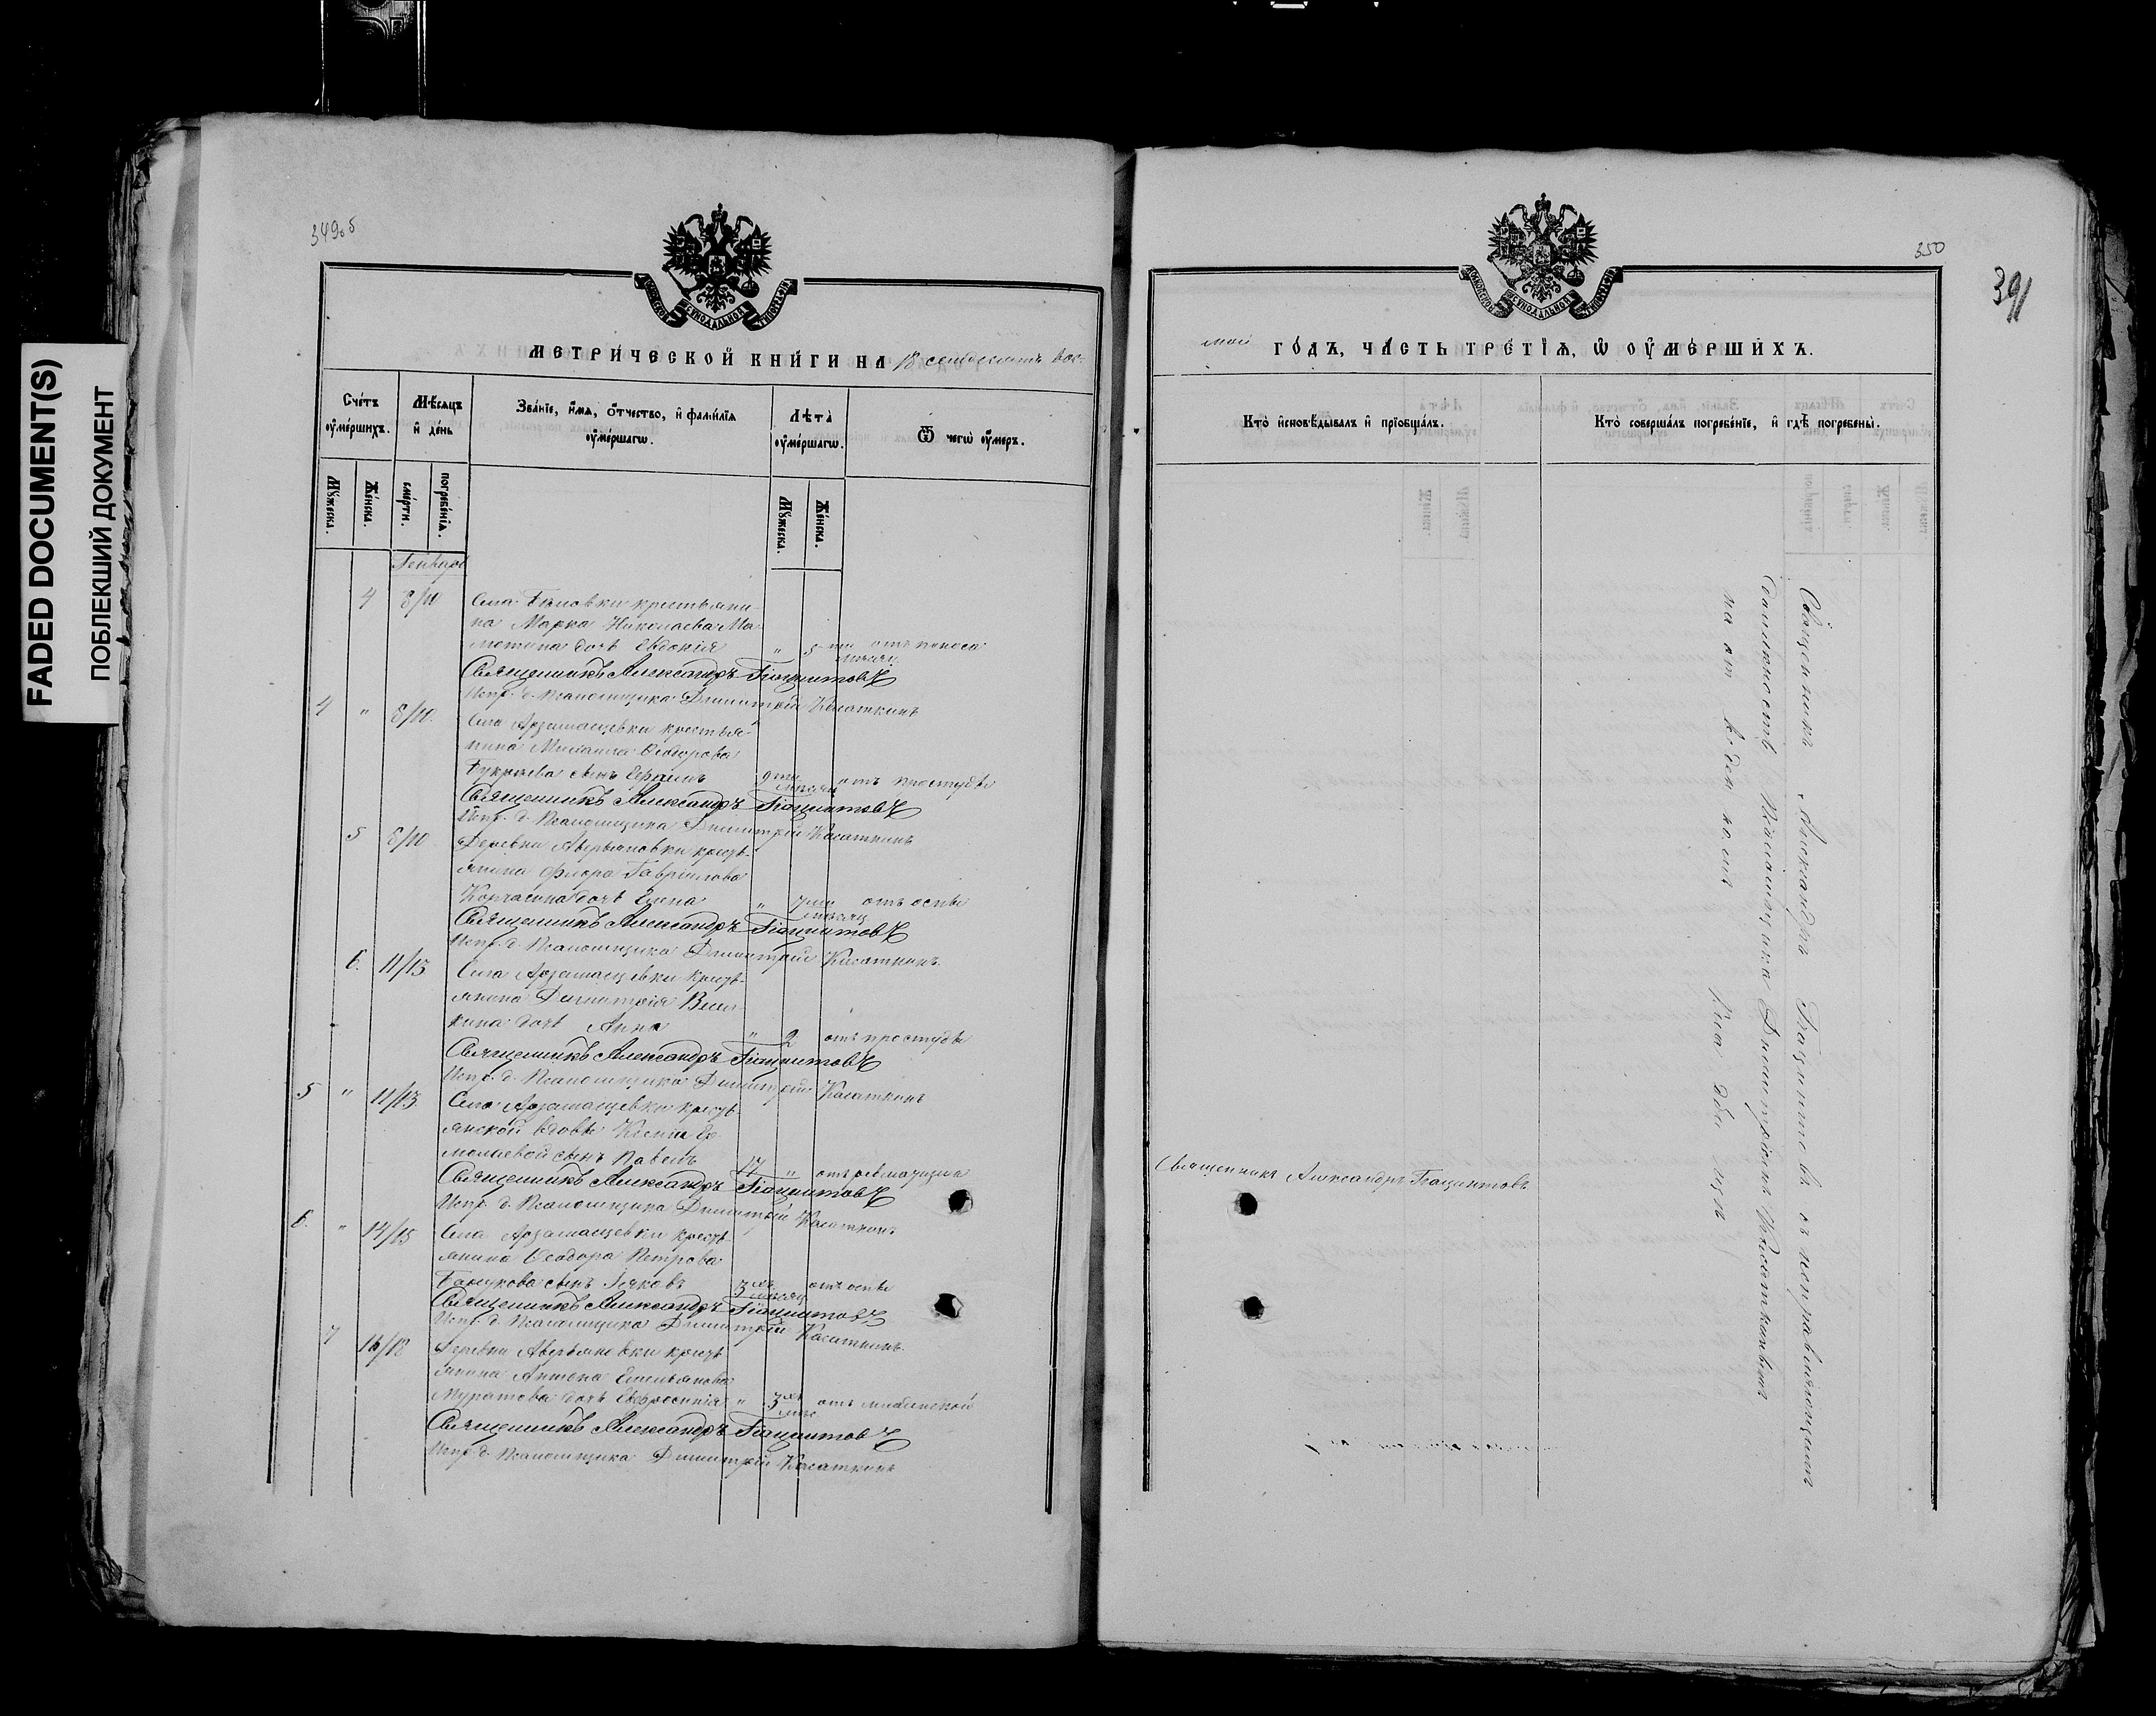 FADED DOCUMENT(S)
ПОБЛЕКШИЙ ДОКУМЕНТ
349об
МЕТРИ́ЧЕСКОЙ КНИ́ГИ НА 18 семьдесятъ вось-
Сче́тъ ᲂу҆ме́ршихъ.
Мѣ́сяцъ и҆ де́нь
Зва́нїе, и҆́мя, ѻ҆́тчество, и҆ фами́лїя ᲂу҆ме́ршагѡ.
Лѣ́та̀ ᲂу҆ме́ршагѡ.
Ѿ чегѡ̀ ᲂу҆́меръ.
Мꙋ́жеска.
Же́нска.
сме́рти.
погребе́нїѧ.
Мꙋ́жеска.
Же́нска.
Генварь
4 8/10 Села крестьяни-
на Марка Николаева Ма-
дочь Евдокія " 5 ти мѣсяц. отъ поноса
Священникъ Александръ Гіацинтовъ
Испр. д. Псаломщика Димитрій Касаткинъ
4 " 8/10. Села Арзамасцевки крестья-
нина Михаила Ѳедорова
сынъ Ефремъ 9 ти мѣсяц отъ простуды
Священникъ Александръ Гіацинтовъ
Испр. д. Псаломщика Димитрій Касаткинъ
5 8/10 Деревни Аверьяновки кресть-
янина Флора Гаврилова
дочь Елена " 7 ми мѣсяц отъ оспы
Священникъ Александръ Гіацинтовъ
Испр. д. Псаломщика Димитрій Касаткинъ.
6. 11/13 Села Арзамасцевки кресть-
янина Димитрія
дочь Анна " 2 отъ простуды
Священникъ Александръ Гіацинтовъ
Испр. д. Псаломщика Димитрій Касаткинъ
5 " 11/13. Села Арзамасцевки кресть-
янской вдовы Ксеніи Ер-
молаевой сынъ Павелъ 17 " отъ ревматизма
Священникъ Александръ Гіацинтовъ
Испр. д. Псаломщика Димитрій Касаткинъ
6. " 14/15 Села Арзамасцевки кресть-
янина Ѳеодора Петрова
сынъ Іяковъ 3 хъ мѣсяц отъ оспы
Священникъ Александръ Гіацинтовъ
Испр. д. Псаломщика Димитрій Касаткинъ.
7 16/18 Деревни Аверьяновки кресть-
янина Антона Емельянова
Муратова дочь Евфросинія " 3 хъ отъ младенской
Священникъ Александръ Гіацинтовъ
Испр. д. Псаломщика Димитрій Касаткинъ
350
391
мой ГО́ДЪ, ЧА́СТЬ ТРЕ́ТЇѦ, Ѡ҆ ОУ҆МЕ́РШИХЪ.
Кто̀ и҆сповѣ́дывалъ и҆ прїѡбща́лъ.
Кто̀ соверша́лъ погребе́нїе, и҆ гдѣ̀ погребены̀.
Священникъ Александръ Гіацинтовъ
Священникъ Александръ Гіацинтовъ съ исправляющимъ
должность Псаломщика Димитріемъ Касаткинымъ